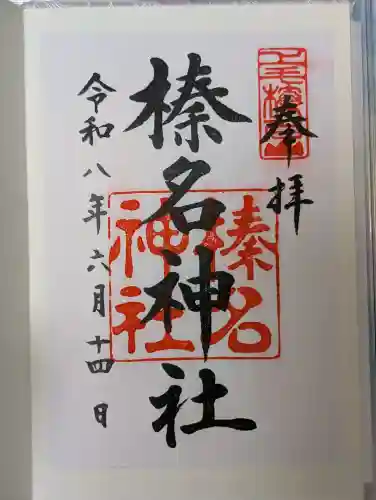 奉拝
榛名神社
令和八年六月十四日
榛名
神社